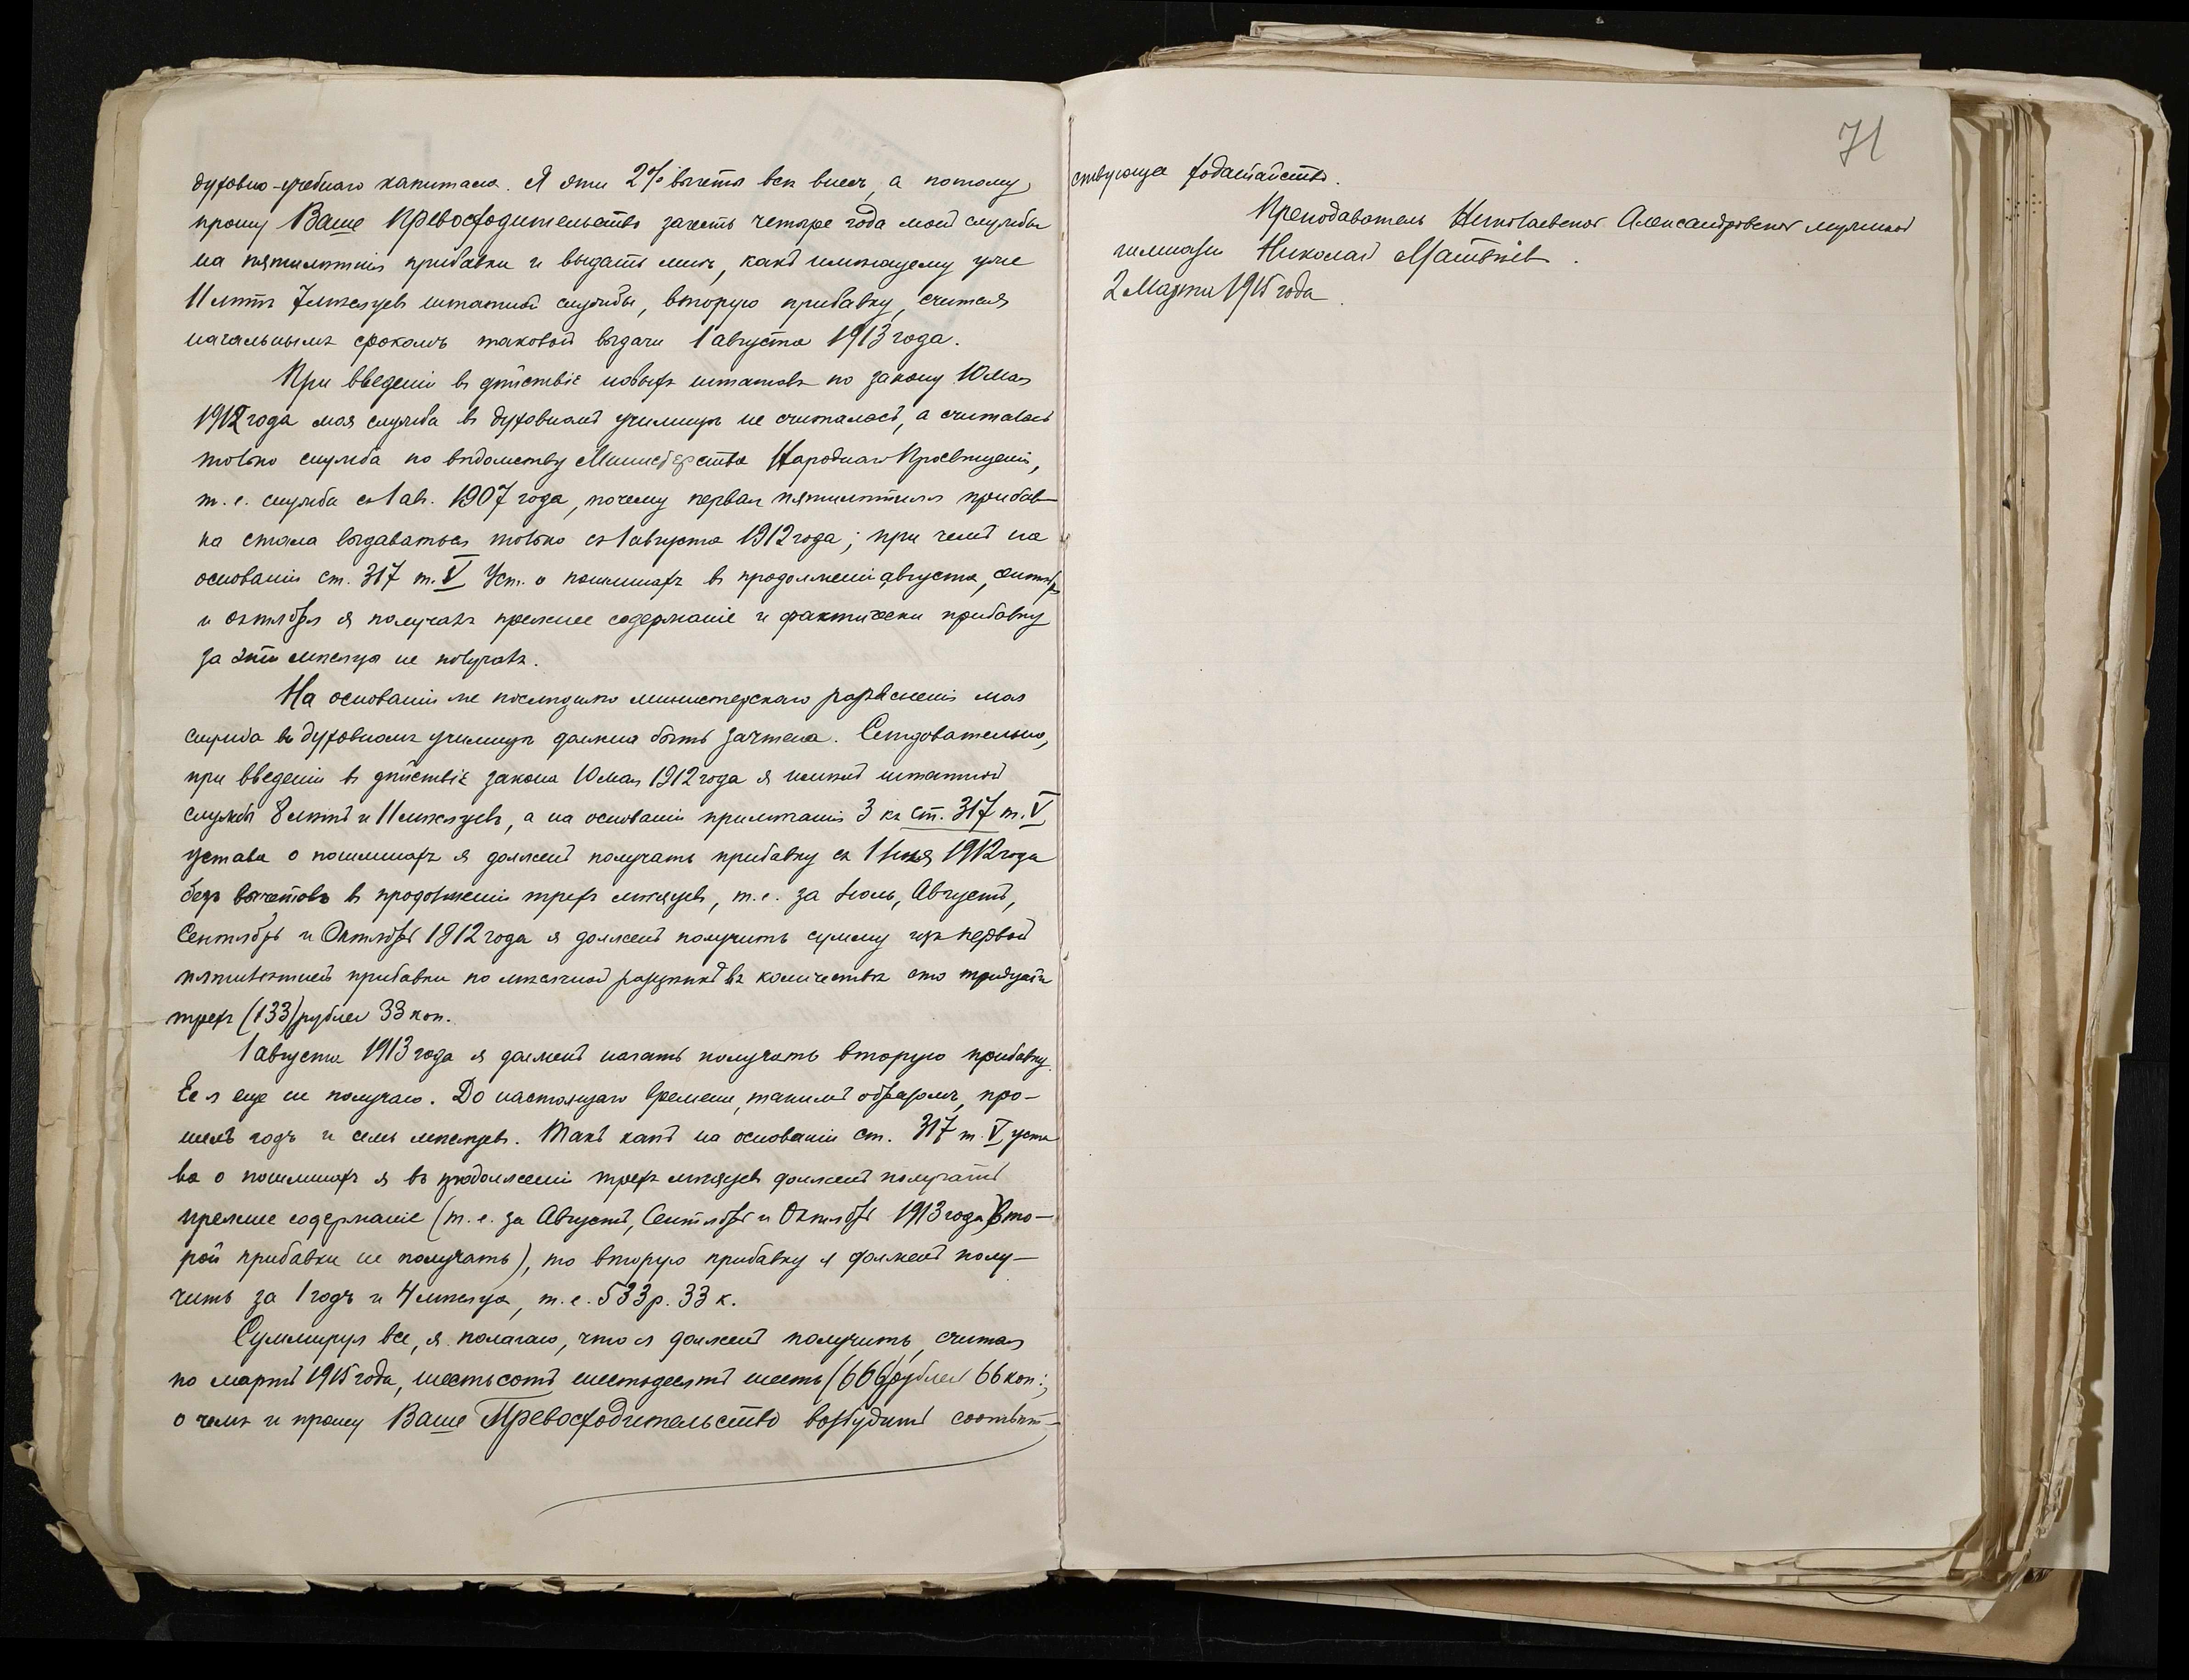 духовно-учебнаго капитала. Я эти 2% вычеты всѣ внесъ, а потому
прошу Ваше Превосходительство зачесть четыре года моей службы
на пятилѣтнія прибавки и выдать мнѣ, какъ имѣющему уже
11 лѣтъ 7 мѣсяцевъ штатной службы, вторую прибавку, считая
начальнымъ срокомъ таковой выдачи 1 августа 1913 года.
При введеніи въ дѣйствіе новыхъ штатовъ по закону 10 мая
1912 года моя служба въ духовномъ училищѣ не считалась, а считалась
только служба по вѣдомству Министерства Народнаго Просвѣщенія,
т. е. служба съ 1 ав. 1907 года, почему первая пятилѣтняя прибав-
ка стала выдаваться только съ 1 августа 1912 года; при чемъ на
основаніи ст. 317 т. V Уст. о пошлинахъ въ продолженіи августа, сентября
и октября я получалъ прежнее содержаніе и фактически прибавку
за эти мѣсяцы не получалъ.
На основаніи же послѣдняго министерскаго разъясненія моя
служба въ духовномъ училищѣ должна быть зачтена. Слѣдовательно,
при введеніи въ дѣйствіе закона 10 мая 1912 года я имѣлъ штатной
службы 8 лѣтъ и 11 мѣсяцевъ, а на основаніи примѣчанія 3 къ ст. 317 т. V
устава о пошлинахъ я долженъ получать прибавку съ 1 Іюля 1912 года
безъ вычетовъ въ продолженіи трехъ мѣсяцевъ, т. е. за Іюль, Августъ,
Сентябрь и Октябрь 1912 года я долженъ получить сумму изъ первой
пятилѣтней прибавки по мѣсячной разцѣнкѣ въ количествѣ сто тридцати
трехъ (133) рублей 33 коп.
1 августа 1913 года я долженъ начать получать вторую прибавку.
Ее я еще не получаю. До настоящаго времени, такимъ образомъ, про-
шелъ годъ и семь мѣсяцевъ. Такъ какъ на основаніи ст. 317 т. V уста
ва о пошлинахъ я въ продолженіи трехъ мѣсяцевъ долженъ получать
прежнее содержаніе (т. е. за Августъ, Сентябрь и Октябрь 1913 года вто-
рой прибавки не получать), то вторую прибавку я долженъ полу-
чить за 1 годъ и 4 мѣсяца, т. е. 533 р. 33 к.
Суммируя все, я полагаю, что я долженъ получить, считая
по мартъ 1915 года, шестьсотъ шестьдесятъ шесть (666) рублей 66 коп.;
о чемъ и прошу Ваше Превосходительство возбудить соотвѣт-
71
ствующее ходатайство.
Преподаватель Николаевской Александровской мужской
гимназіи Николай Матвѣевъ.
2 Марта 1915 года.